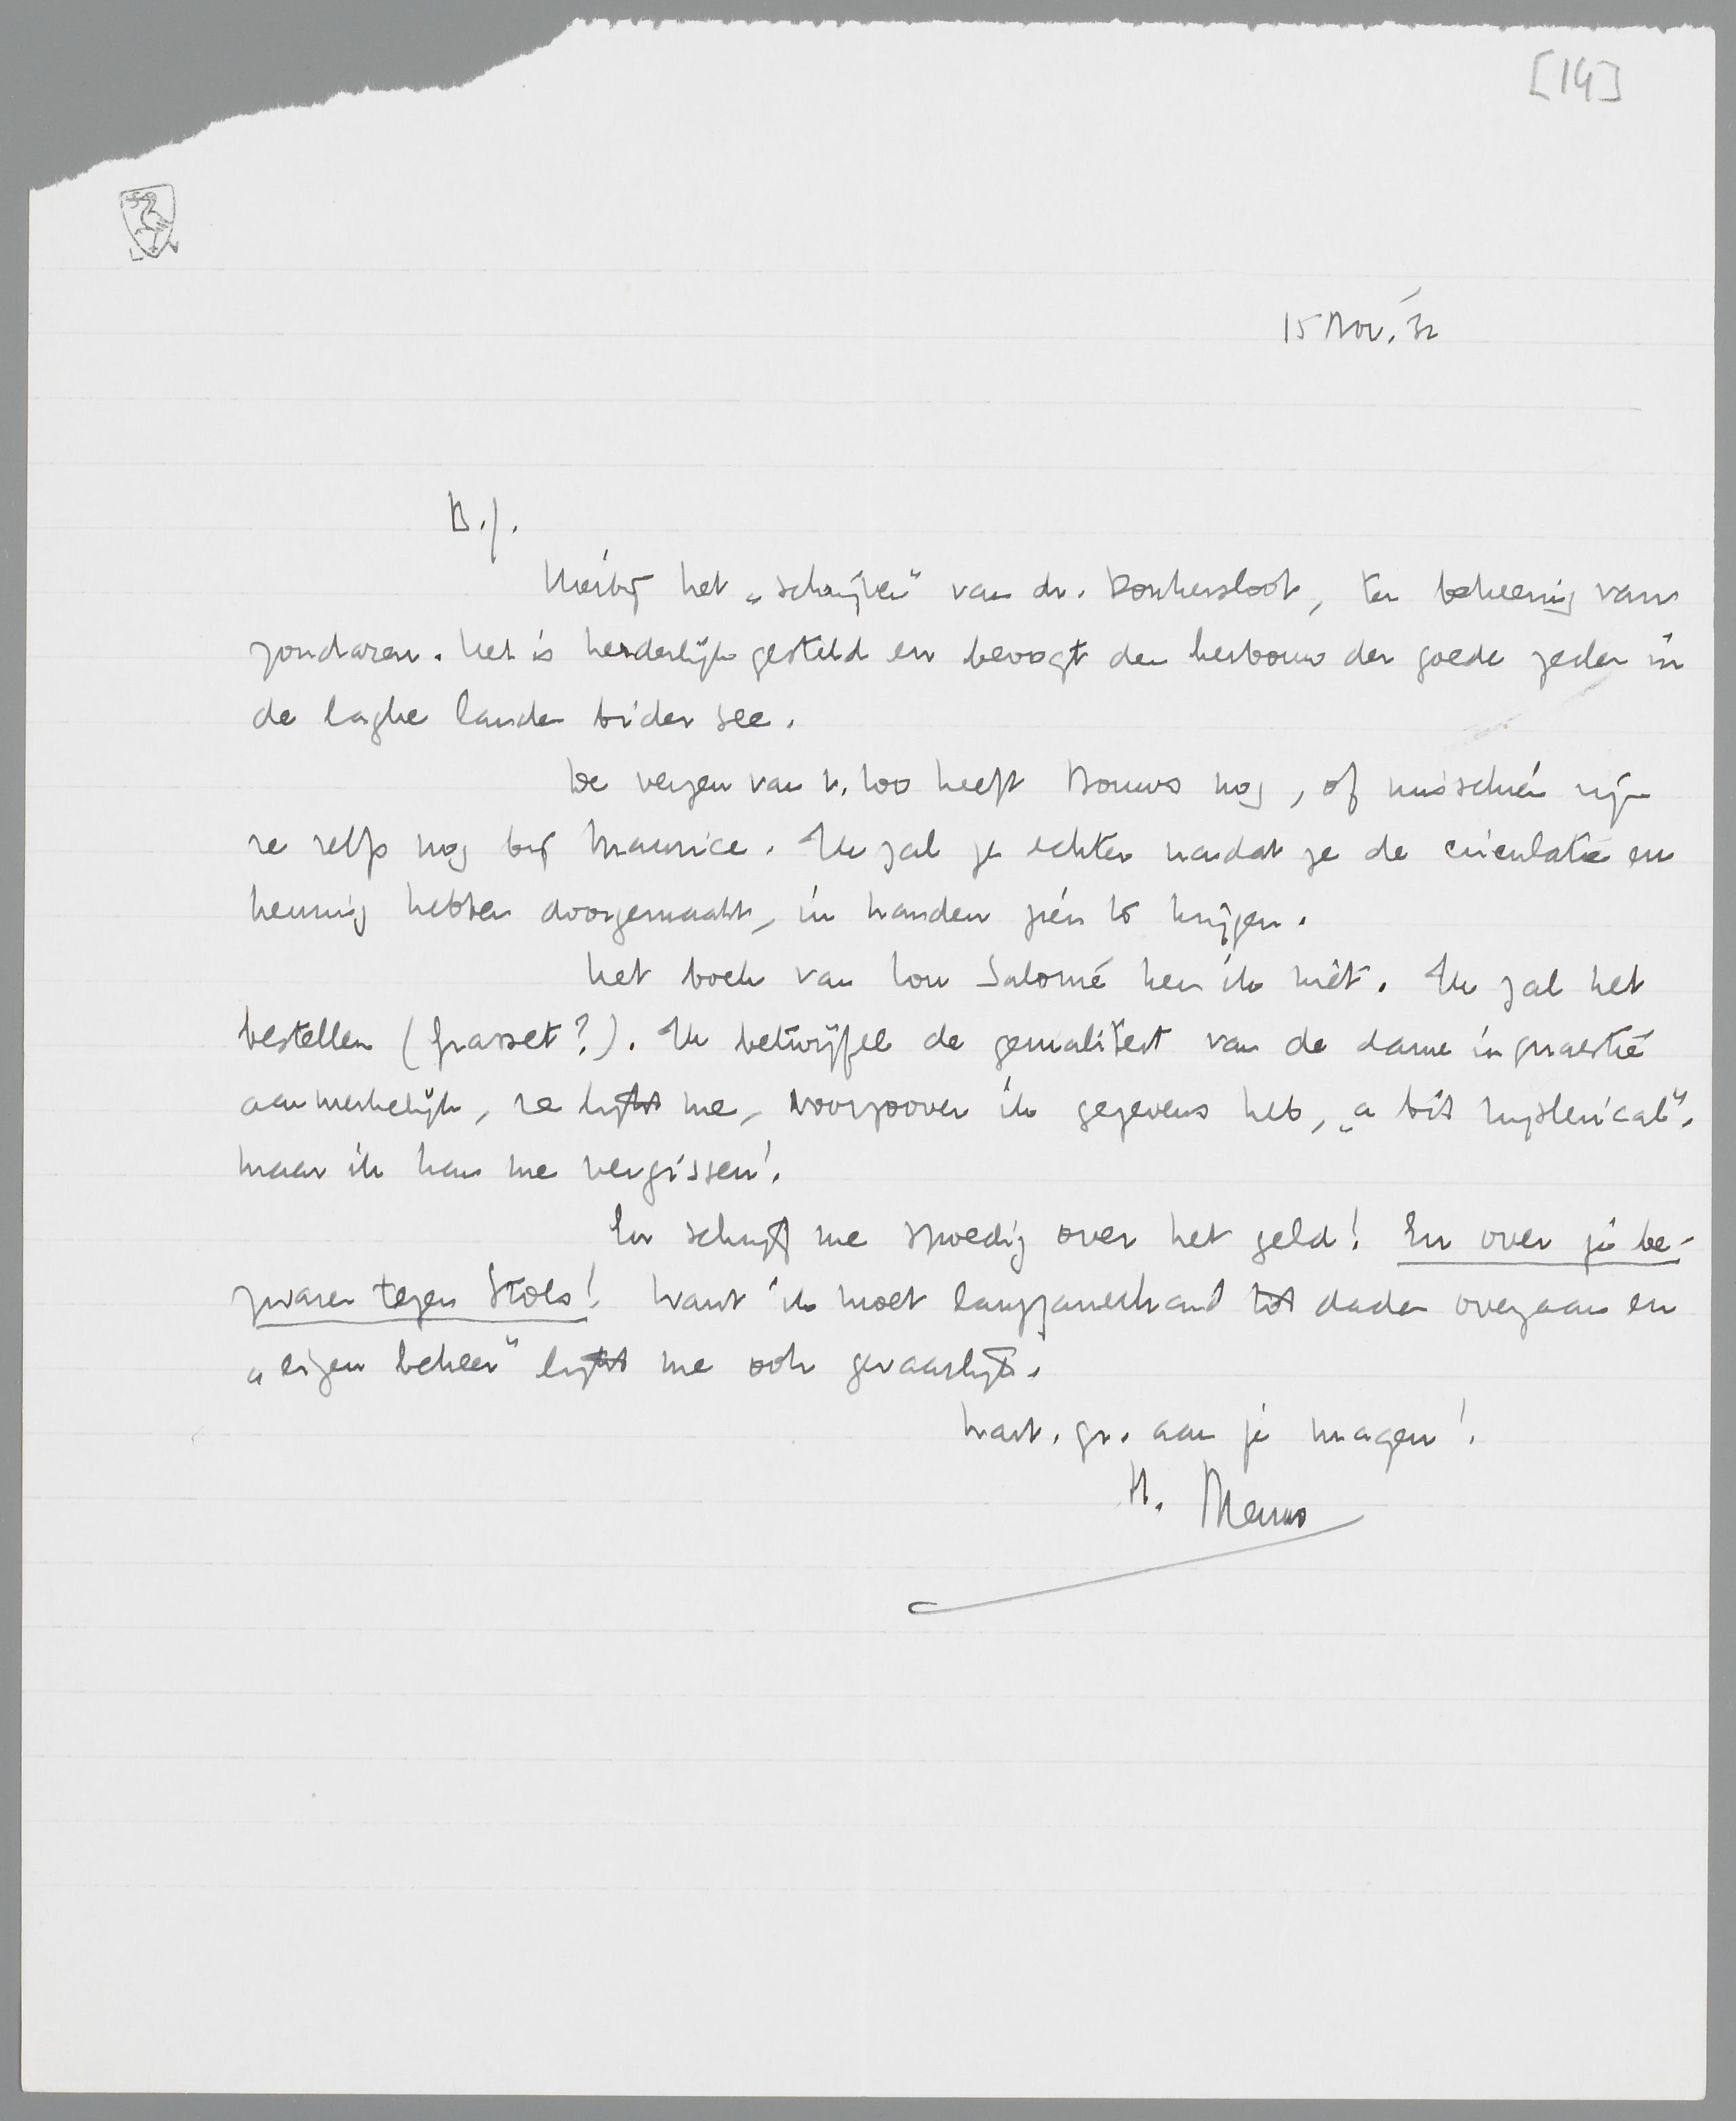 [14]
15 Nov. '32
B.J.
Hierbij het „schrijven” van dr. Donkersloot, ter bekeering van
zondaren. Het is herderlijk gesteld en beoogt den herbouw der goede zeden in
de laghe landen bider see.
De verzen van v. Loo heeft Bouws nog, of misschien zijn
ze zelfs nog bij Maurice. Ik zal ze echter nadat ze de circulatie en
keuring hebben doorgemaakt, in handen zien te krijgen.
Het boek van Lou Salomé ken ik niet. Ik zal het
bestellen (Grasset?). Ik betwijfel de genialiteit van de dame in quaestie
aanmerkelijk, ze lijkt me, voorzoover ik gegevens heb, „a bit hysterical”.
Maar ik kan me vergissen!
En schrijf me spoedig over het geld! En over je be-
zwaren tegen Stols! Want ik moet langzamerhand tot daden overgaan en
„eigen beheer” lijkt me ook gevaarlijk.
Hart. gr. aan je magen!
H. Menno